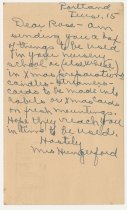 Portland
Dear Rose - Am
sending you a box
of things to be used
in your
school or (elsewhere)
in Xmas preparations
candles - streamers -
cards to be made into
labels or Xmas cards
on fresh mountings.
Hope they reach you
in time to be used.
Hastily
Mrs Hungerford